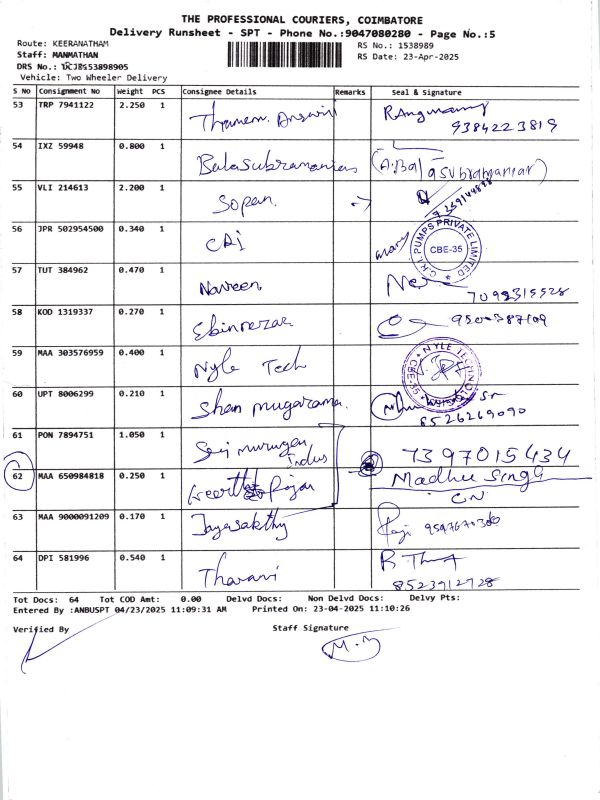 THE PROFESSIONAL COURIERS, COIMBATORE
Delivery Runsheet - SPT - Phone No.:9047080280 - Page No.:5
Route: KEERANATHAM
RS No.: 1538989
Staff: MANMATHAN
RS Date: 23-Apr-2025
DRS No.:
Vehicle: Two Wheeler Delivery
S No Consignment No Weight PCS Consignee Details Remarks Seal & Signature
53 TRP 7941122 2.250 1
9384223819
54 IXZ 59948 0.800 1 Balasubramanian
55 VLI 214613 2.200 1 Sopan
56 JPR 502954500 0.340 1 CRI
C.R.I. PUMPS PRIVATE LIMITED
CBE-35
57 TUT 384962 0.470 1 Naveen
58 KOD 1319337 0.270 1 Ebinezar
59 MAA 303576959 0.400 1 Nyle Tech
60 UPT 8006299 0.210 1
8526269090
61 PON 7894751 1.050 1 Indus 7397015434
62 MAA 650984818 0.250 1 Madhu Singh
63 MAA 9000091209 0.170 1 Jayasakthy
64 DPI 581996 0.540 1 Tharani
8523912728
Tot Docs: 64 Tot COD Amt: 0.00 Delvd Docs: Non Delvd Docs: Delvy Pts:
Entered By :ANBUSPT 04/23/2025 11:09:31 AM Printed On: 23-04-2025 11:10:26
Verified By Staff Signature